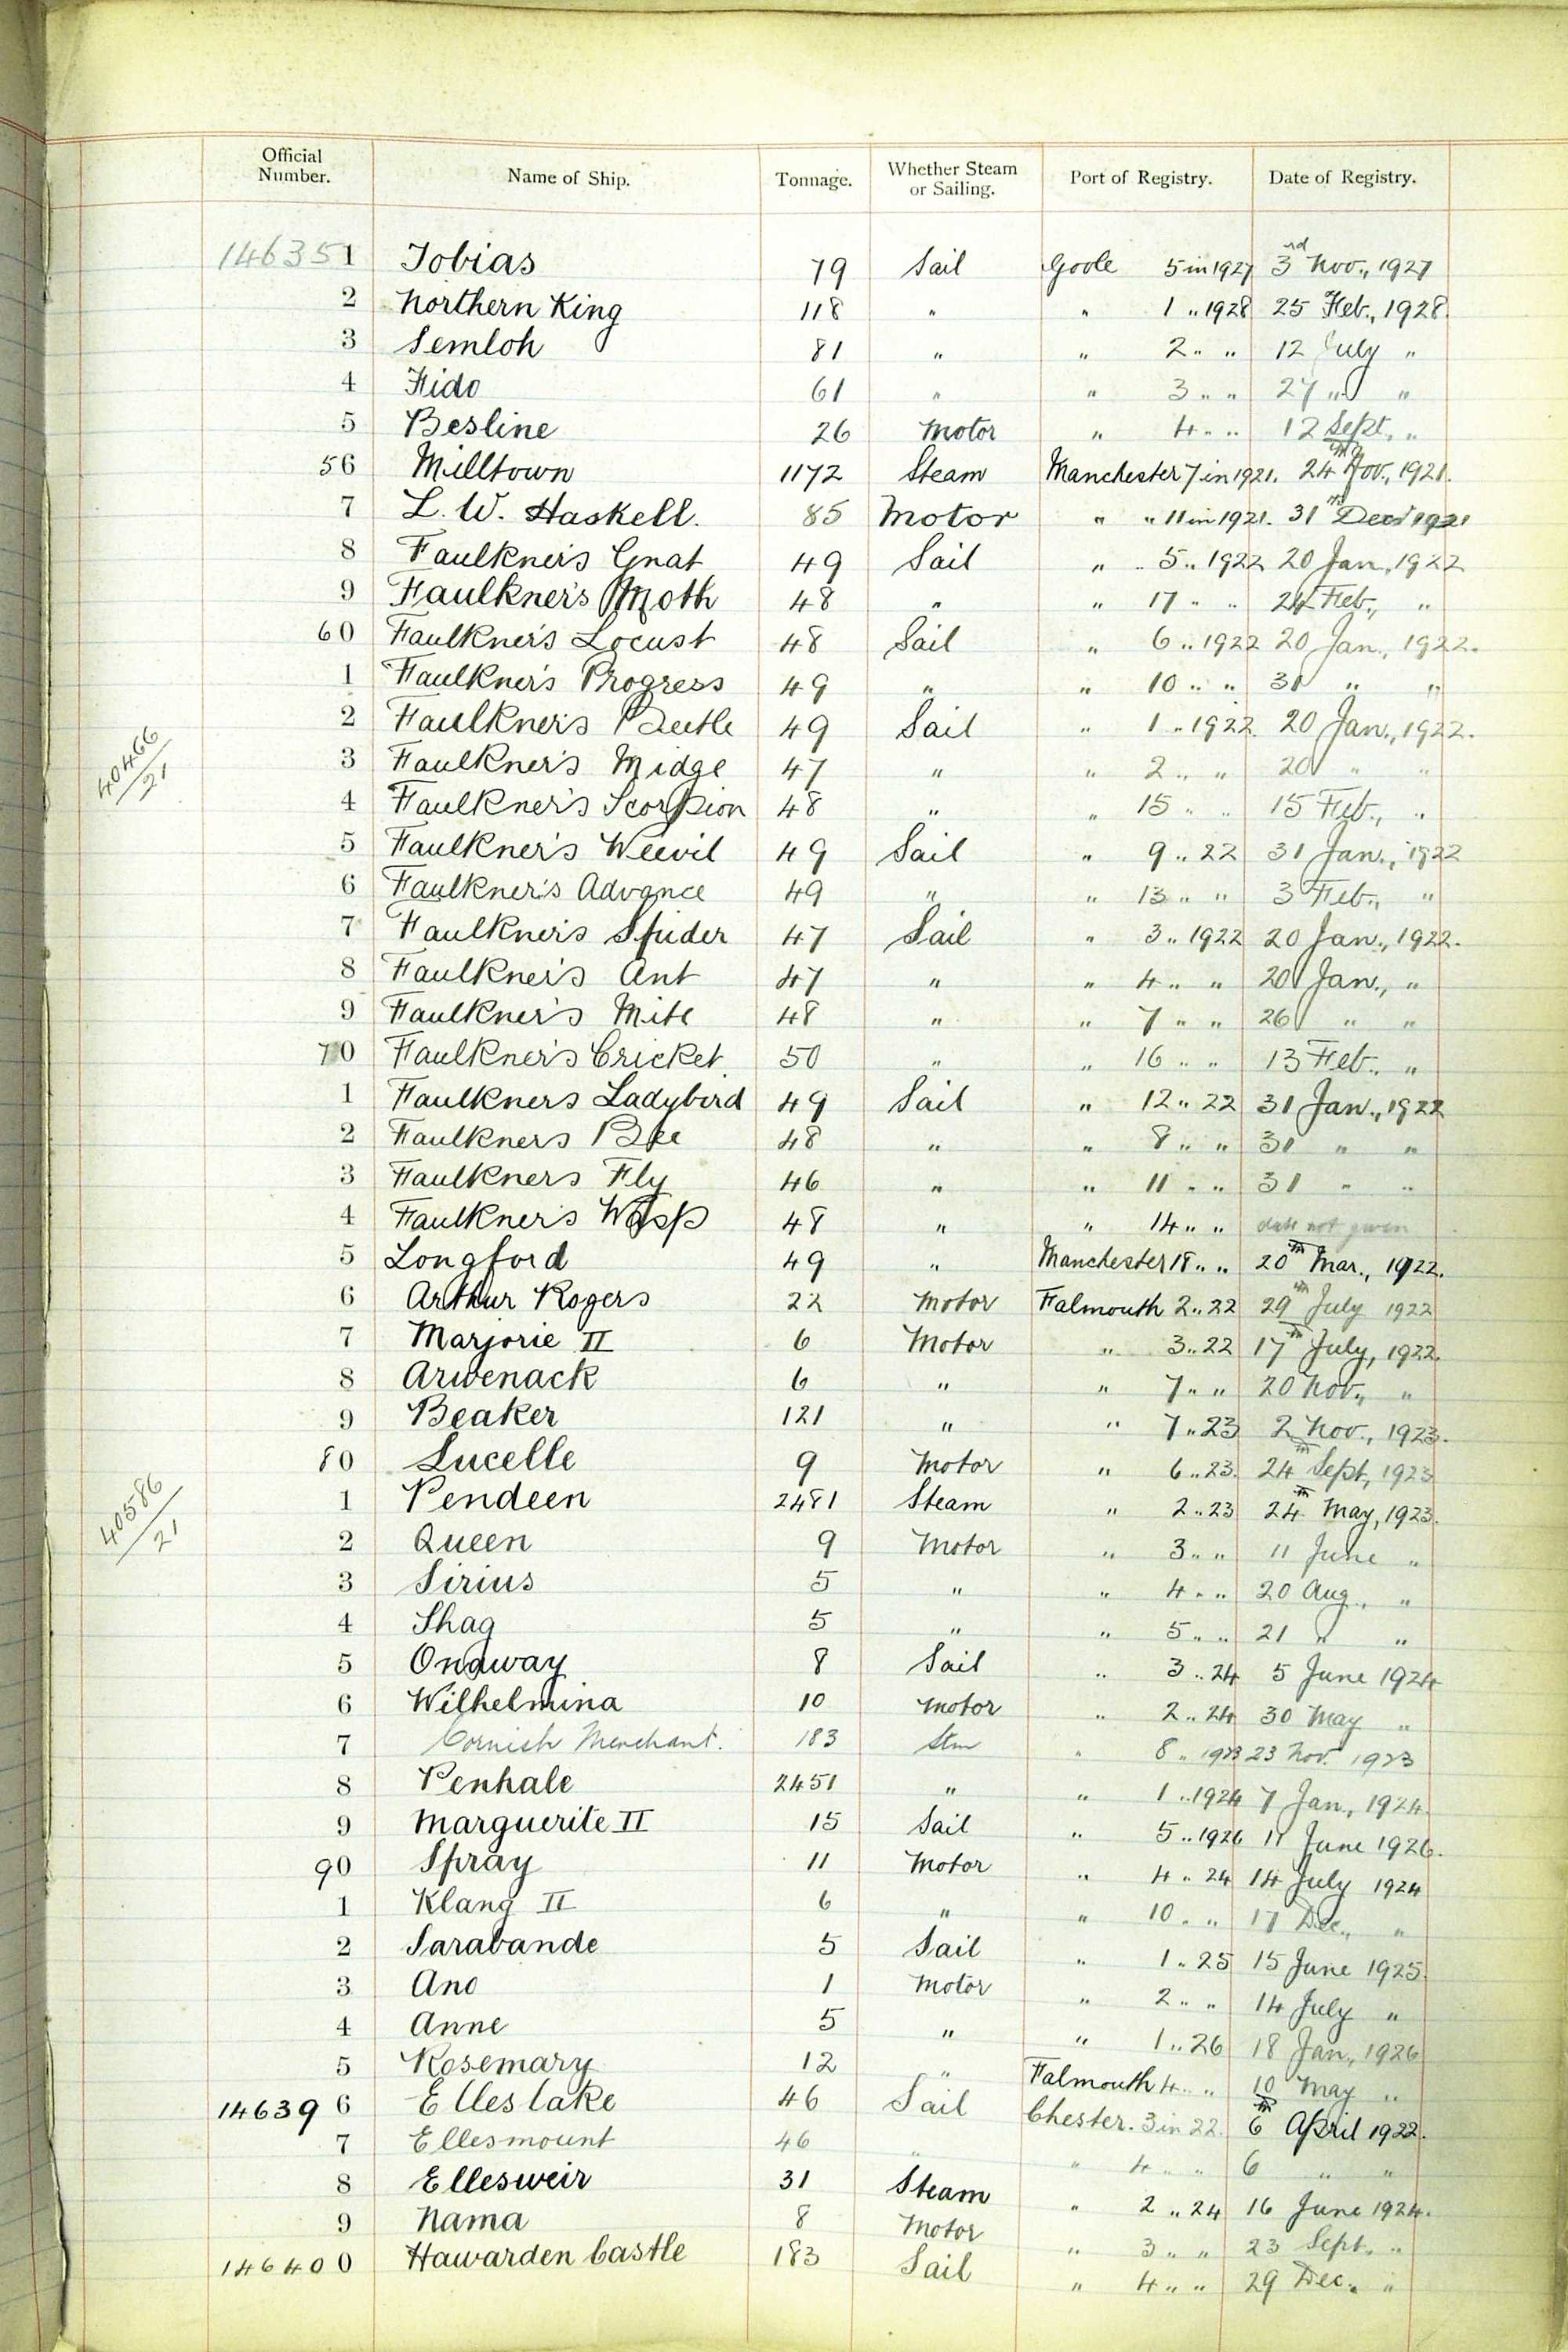 Official Number. Name of Ship. Tonnage. Whether Steam or Sailing. Port of Registry. Date of Registry.
146351 Tobias 79 Sail Goole 5 in 1927 3rd Nov., 1927
2 Northern King 118 " " 1 " 1928 25 Feb., 1928.
3 Semloh 81 " " 2 " " 12 July "
4 Fido 61 " " 3 " " 27 " "
5 Besline 26 Motor " 4 " " 12 Sept., "
56 Milltown 1172 Steam Manchester 7 in 1921. 24th Nov., 1921.
7 L. W. Haskell. 85 Motor " " 11 in 1921. 31st Decr 1921
8 Faulkner's Gnat 49 Sail " " 5 " 1922 20 Jan., 1922
9 Faulkner's Moth 48 " " 17 " " 24 Feb., "
60 Faulkner's Locust 48 Sail " 6 " 1922 20 Jan., 1922.
1 Faulkner's Progress 49 " " 10 " " 31 " "
2 Faulkner's Beetle 49 Sail " 1 " 1922 20 Jan., 1922.
40466/21
3 Faulkner's Midge 47 " " 2 " " 20 " "
4 Faulkner's Scorpion 48 " " 15 " " 15 Feb., "
5 Faulkner's Weevil 49 Sail " 9 " 22 31 Jan., 1922
6 Faulkner's Advance 49 " " 13 " " 3 Feb., "
7 Faulkner's Spider 47 Sail " 3 " 1922 20 Jan., 1922.
8 Faulkner's Ant 47 " " 4 " " 20 Jan., "
9 Faulkner's Mite 48 " " 7 " " 26 " "
70 Faulkner's Cricket 50 " " 16 " " 13 Feb., "
1 Faulkners Ladybird 49 Sail " 12 " 22 31 Jan., 1922
2 Faulkners Bee 48 " " 8 " " 31 " "
3 Faulkners Fly 46 " " 11 " " 31 " "
4 Faulkner's Wasp 48 " " 14 " " date not given
5 Longford 49 " Manchester 18 " " 20th Mar., 1922.
6 Arthur Rogers 22 Motor Falmouth 2 " 22 29th July 1922
7 Marjorie II 6 Motor " 3 " 22 17th July, 1922.
8 Arwenack 6 " " 7 " " 20 Nov., "
9 Beaker 121 " " 7 " 23 2 Nov., 1923.
80 Lucelle 9 Motor " 6 " 23. 24th Sept, 1923
40586/21
1 Pendeen 2481 Steam " 2 " 23 24th May, 1923.
2 Queen 9 Motor " 3 " " 11 June "
3 Sirius 5 " " 4 " " 20 Aug., "
4 Shag 5 " " 5 " " 21 " "
5 Onaway 8 Sail " 3 " 24 5 June 1924
6 Wilhelmina 10 Motor " 2 " 24 30 May "
7 Cornish Merchant. 183 Stm " 8 " 1923 23 Nov. 1923
8 Penhale 2451 " " 1 " 1924 7 Jan., 1924.
9 Marguerite II 15 Sail " 5 " 1926 11 June 1926.
90 Spray 11 Motor " 4 " 24 14 July 1924
1 Klang II 6 " " 10 " " 17 Dec., "
2 Sarabande 5 Sail " 1 " 25 15 June 1925.
3 Ano 1 Motor " 2 " " 14 July "
4 Anne 5 " " 1 " 26 18 Jan., 1926
5 Rosemary 12 " Falmouth 4 " " 10 May "
146396 Elleslake 46 Sail Chester. 3 in 22. 6th April 1922.
7 Ellesmount 46 " " 4 " " 6 " "
8 Ellesweir 31 Steam " 2 " 24 16 June 1924.
9 Nama 8 Motor " 3 " " 23 Sept. "
146400 Hawarden Castle 183 Sail " 4 " " 29 Dec. "